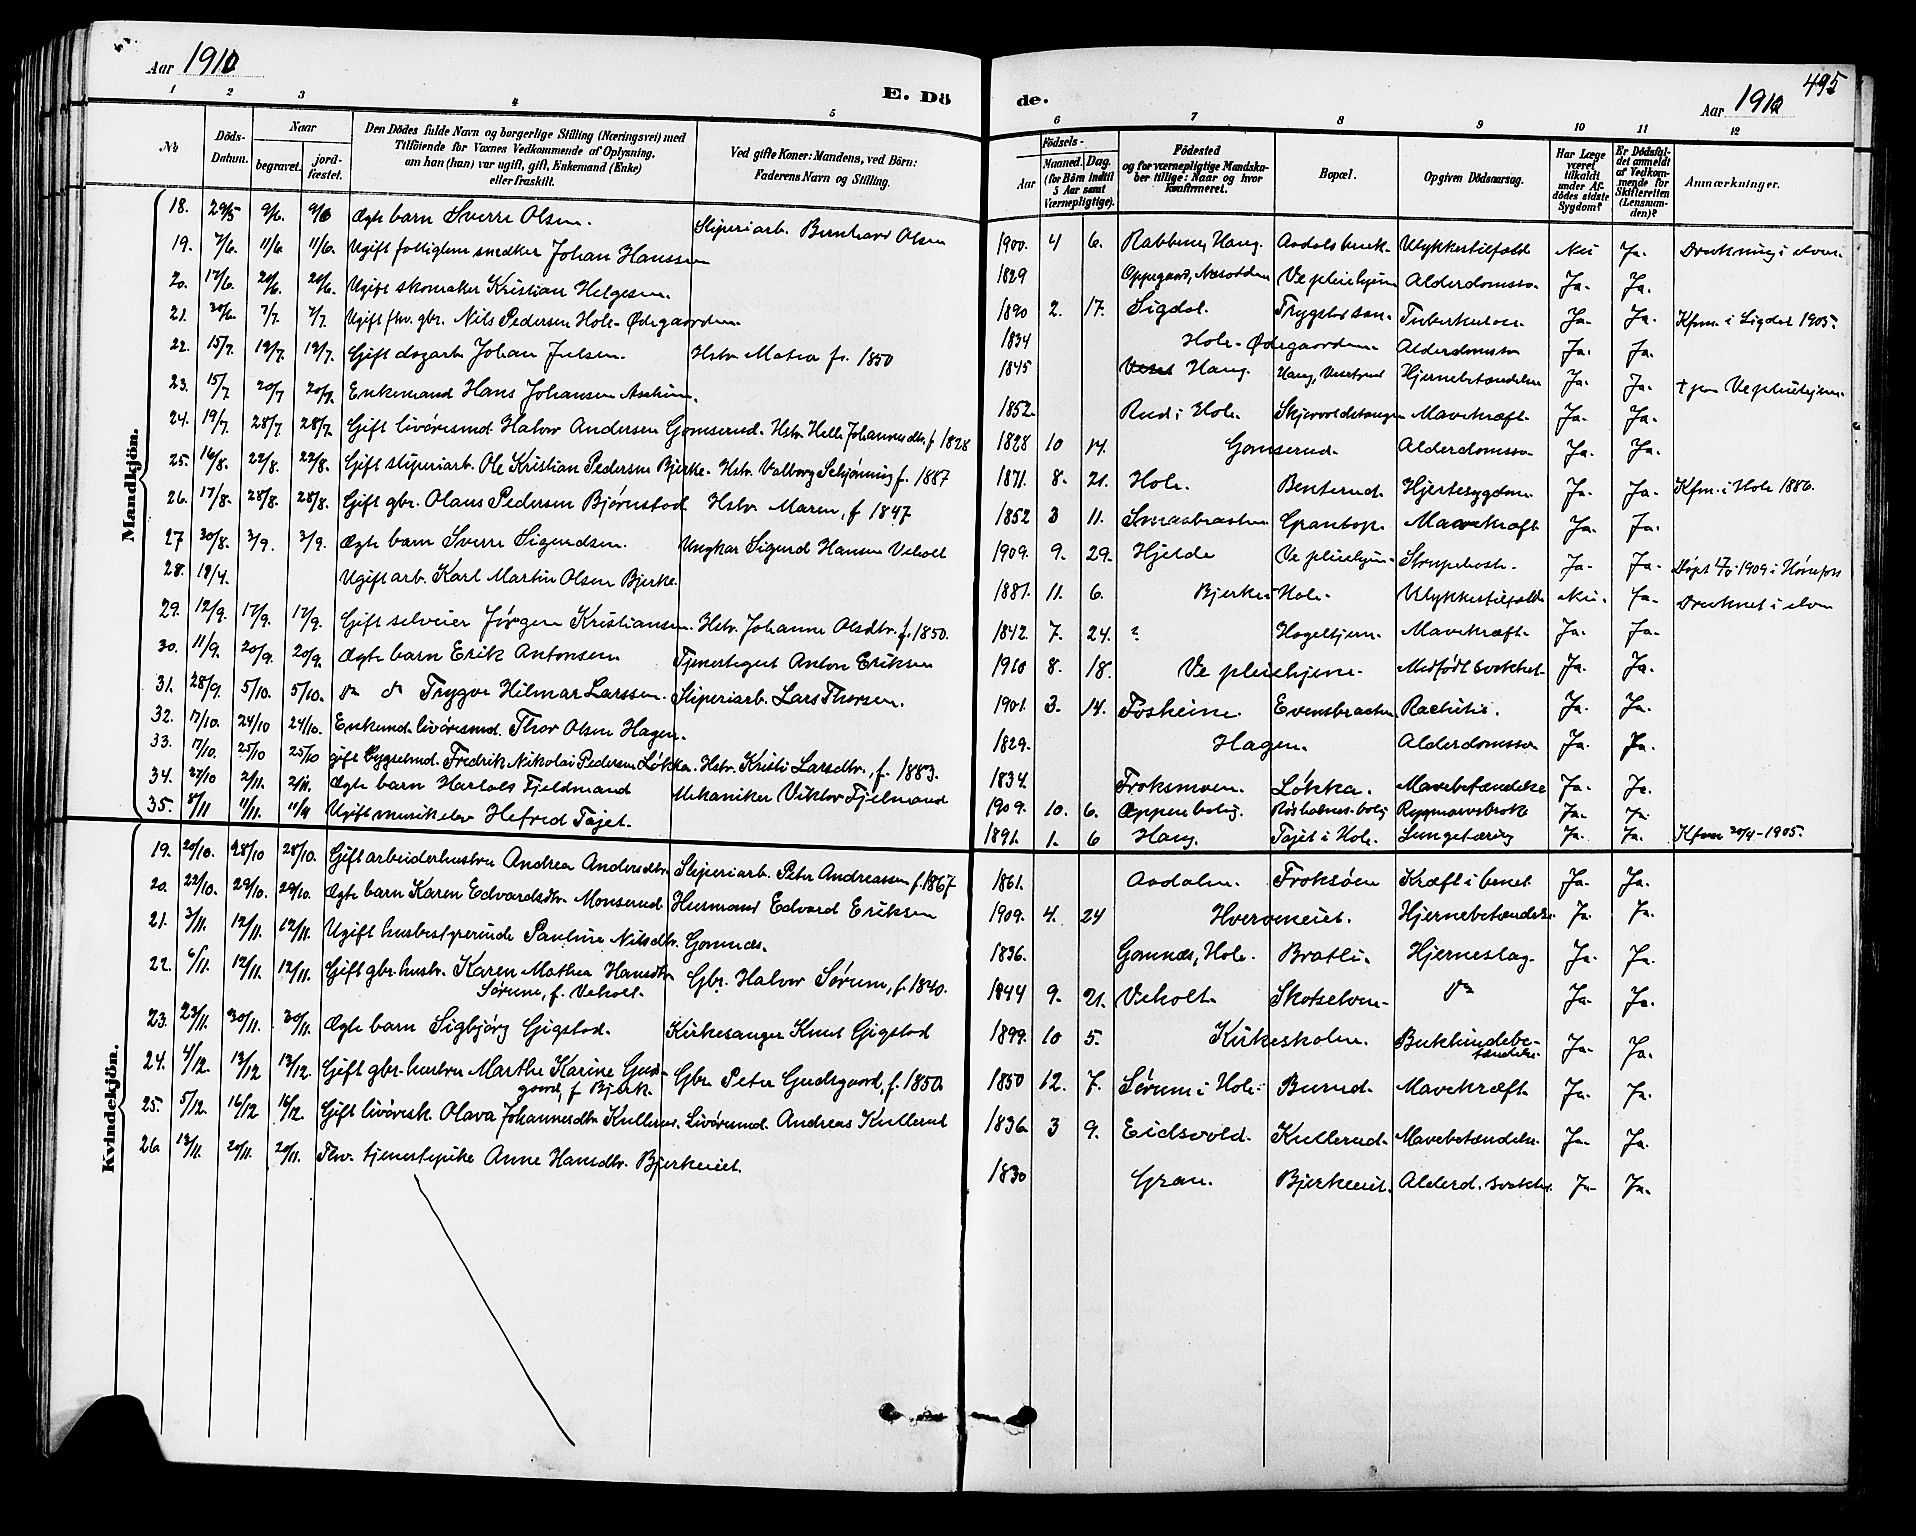 Aar 1910
E. Dö
de.
Aar 1910
495
1 2 3 4 5 6 7 8 9 10 11 12
No
Döds-Datum.
Naar
begravet.
jord-fæstet.
Den Dödes fulde Navn og borgerlige Stilling (Næringsvei) med
Tilföiende for Voxnes Vedkommende af Oplysning,
om han (hun) var ugift, gift, Enkemand (Enke)
eller fraskilt.
Ved gifte Koner: Mandens, ved Börn:
Faderens Navn og Stilling.
Födsels-
Aar
Maaned. Dag.
(for Börn indtil
5 Aar samt
Værnepligtige).
Födested
og for værnepligtige Mandska-
ber tillige: Naar og hvor
Konfirmeret.
Bopæl.
Opgiven Dödsaarsag.
Har Læge
været
tilkaldt
under Af-
dödes sidste
Sygdom?
Er Dödsfal-
det anmeldt
af Vedkom-
mende for
Skifteretten
(Lensman-
den)?
Anmærkninger.
Mandkjön.
18. 29/5 9/6. 9/6 Ægte barn Sverre Olsen. Sliperiarb. Bernhard Olsen 1900. 4 6. Haug. Aadalsbruk. Ulykkestilfælde Nei Ja. Drukning i elven.
19. 7/6. 11/6 11/6. Ugift snedker Johan Hanssen 1829 Oppegaard, Nesodden Ve pleiehjem Alderdomssv. Ja. Ja.
20. 17/6. 20/6. Ugift skomaker Kristian Helgesen. 1890 2. 17. Sigdal. Tuberkulose Ja. Ja. Kfm. i Sigdal 1905.
21. 30/6. 7/7. 7/7. Ugift fhv. gbr. Nils Pedersen Hole-Ødegaarden 1834 Hole-Ødegaarden Alderdomssv Ja. Ja.
22. 15/7. 19/7. 19/7. Gift Johan Julsen. Hstr. Matea f. 1850 1845 Haug. Hjernebetændelse Ja. Ja. + paa Ve pleiehjem.
23. 15/7 20/7 20/7. Enkemand Hans Johansen 1852. Rud i Hole. Mavekræft. Ja. Ja.
24. 19/7. 28/7 28/7. Gift livøresmd. Halvor Andersen Gomserud. Hstr. Helle Johannesdtr. f. 1828 1828 10 14. Gomserud. Alderdomssv Ja. Ja.
25. 16/8. 22/8. 22/8. Gift sliperiarb. Ole Kristian Pedersen Bjerke. Hstr. Valborg Schjønning f. 1887 1871. 8. 21. Hole. Benterud. Hjertesygdom Ja. Ja. Kfm. i Hole 1886.
26. 17/8. 28/8. 28/8. Gift gbr. Olaus Pedersen Bjørnstad Hstr. Maren, f 1847 1852 3 11. Smaabraaten Grantop. Mavekræft Ja. Ja.
27 30/8. 3/9. 3/9. Ægte barn Sverre Sigurdsen. Ungkar Sigurd Hansen Veholt 1909. 9. 29. Hjelde Ve pleiehjem. Strupehoste. Ja. Ja. Døpt 1909 i Hønefos
28. 19/4. Ugift arb. Karl Martin Olsen Bjerke 1881. 11. 6. Bjerke i Hole. Ulykkestilfælde Nei. Ja. Druknet i elven
29. 12/9. 17/9. 17/9. Gift selveier Jørgen Kristiansen. Hstr. Johanne Olsdtr. f. 1850. 1842. 7. 24. ? Hageltjern. Mavekræft. Ja. Ja.
30. 11/9. 20/9. 20/9. Ægte barn Erik Antonsen Tjenestegut Anton Eriksen 1910 8. 18. Ve pleiehjem. Medfødt svakhet Ja. Ja.
31. 28/9. 5/10. 5/10. do do Trygve Hilmar Larssen. Sliperiarb. Lars Thorsen. 1901. 3. 14. Fosheim. Evensbraaten Rachitis. Ja. Ja.
32. 17/10. 24/10 24/10. Enkemd. livøresmd. Thor Olsen Hagen. 1829. Hagen. Alderdomssv Ja. Ja.
33. 17/10. 25/10 25/10 gift bygselmd. Fredrik Nikolai Pedersen Løkka. Hstr. Kristi Larsdtr. f. 1883. 1834. Froksmoen. Løkka. Mavebetændelse Ja. Ja.
34. 27/10 2/11. 2/11. Ægte barn Fjeldmand Mekaniker Viktor Fjelmand 1909. 10. 6. Rygmarvsbrokk Ja. Ja.
35. 8/11 11/11. 11/11 Ugift musikelev Hefred Tajet. 1891. 1. 6 Haug. Tajet i Hole. Lungetæring Ja. Ja. Kfm 20/4-1905.
Kvindekjön.
19. 20/10. 28/10 28/10. Gift arbeiderhustru Andrea Andersdtr. Sliperiarb. Peter Andreassen f. 1867 1861. Aadalen. Froksøen Kræft i benet Ja. Ja.
20. 22/10. 29/10. 29/10. Ægte barn Karen Edvardsdtr Monserud Husmand Edvard Eriksen 1909. 4. 24 Hvervneiet. Hjernebetændelse Ja. Ja.
21. 3/11. 12/11. 12/11. Ugift husbestyrerinde Pauline Nilsdtr. Gomnæs. 1836. Gomnæs, Hole. Bratli. Hjerneslag. Ja. Ja.
22. 6/11. 12/11. 12/11. Gift gbr. hustr. Karen Mathea Hansdtr Gbr. Halvor Sørum, f. 1840. 1844 9. 21. Veholt. Skotselven do Ja. Ja.
Sørum, f. Veholt.
23. 23/11. 30/11. 30/11. Ægte barn Sigbjørg Gigstad. Kirkesanger Knut Gigstad 1899. 10 5. Kirkeskolen. Bukhindebe-
tændelse. Ja. Ja.
24. 4/12. 13/12 13/12. Gift gbr. hustru Marthe Karine Guds- Gbr. Peter Gudsgaard, f. 1850. 1850 12. 7. Sørum i Hole. Burud. Mavekræft Ja. Ja.
gaard, f. Bjørk.
25. 5/12. 16/12 16/12 Gift livøresk. Olava Johannesdtr Kullerud. Livøresmd. Andreas Kullerud 1836. 3 9. Eidsvold. Kullerud. Mavebetændelse. Ja. Ja.
26. 13/11. 20/11. 20/11. Fhv. tjenestepike Anne Hansdtr. Bjerkeeiet. 1830 Gran. Bjerkeeiet. Alderd. svakhet. Ja. Ja.